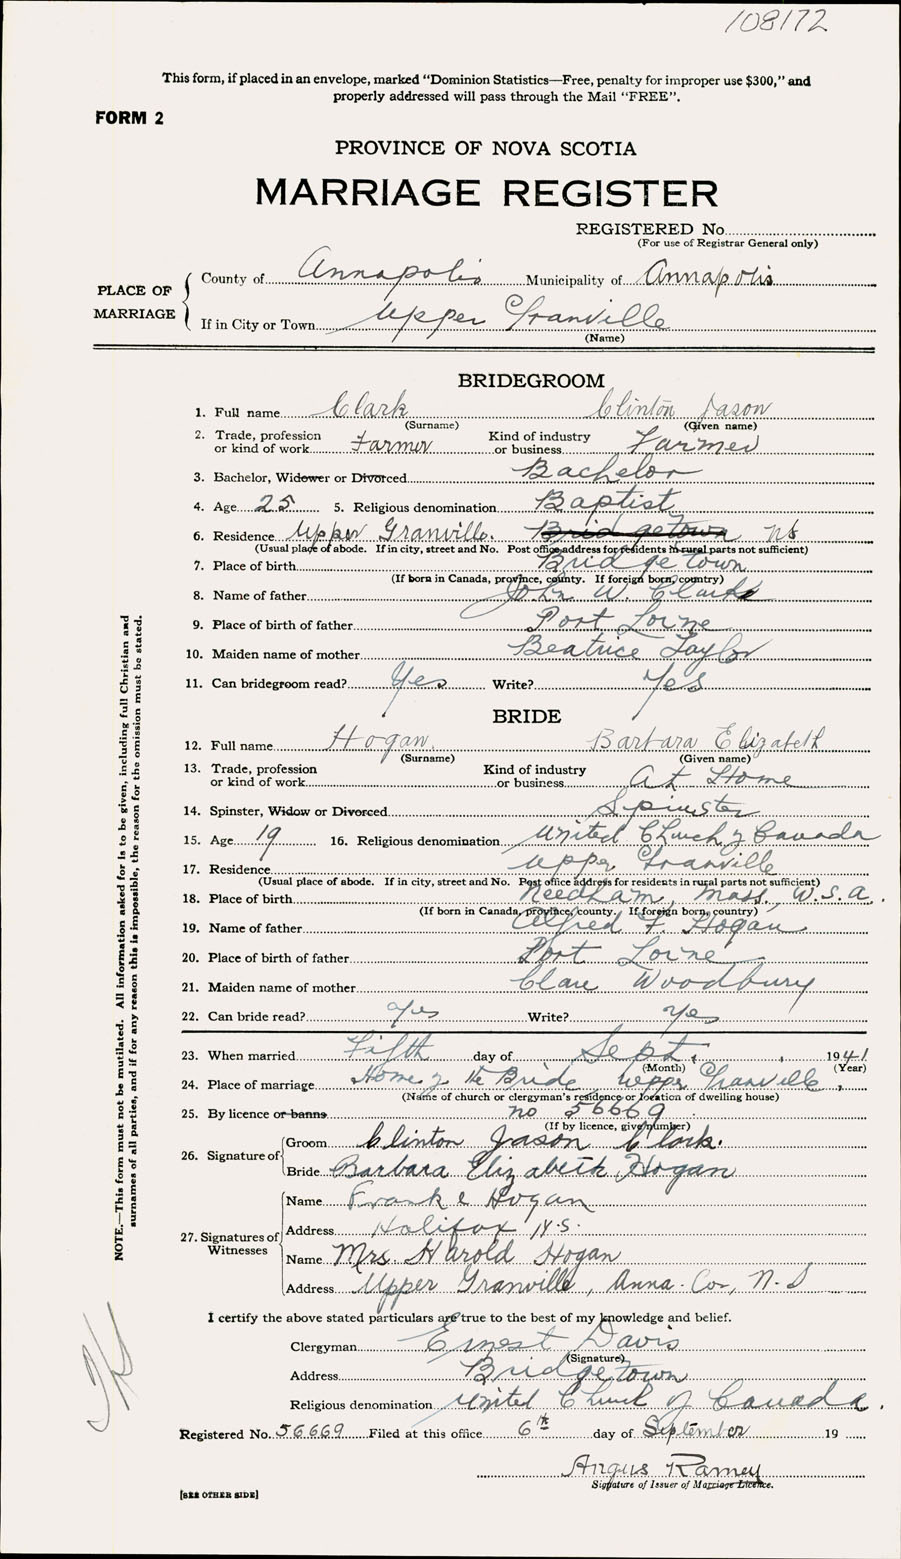 108172
This form, if placed in an envelope, marked "Dominion Statistics—Free, penalty for improper use $300," and
properly addressed will pass through the Mail "FREE".
FORM 2
PROVINCE OF NOVA SCOTIA
MARRIAGE REGISTER
REGISTERED No.
(For use of Registrar General only)
PLACE OF MARRIAGE
County of Annapolis Municipality of Annapolis
If in City or Town Upper Granville
(Name)
BRIDEGROOM
1. Full name Clark Clinton Jason
(Surname) (Given name)
2. Trade, profession or kind of work Farmer Kind of industry or business Farmer
3. Bachelor, Widower or Divorced Bachelor
4. Age 25 5. Religious denomination Baptist
6. Residence Upper Granville. Bridgetown NS
(Usual place of abode. If in city, street and No. Post office address for residents in rural parts not sufficient)
7. Place of birth Bridgetown
(If born in Canada, province, county. If foreign born, country)
8. Name of father John W. Clark
9. Place of birth of father Port Lorne
10. Maiden name of mother Beatrice Taylor
11. Can bridegroom read? Yes Write? Yes
BRIDE
12. Full name Hogan. Barbara Elizabeth
(Surname) (Given name)
13. Trade, profession or kind of work Kind of industry or business At Home
14. Spinster, Widow or Divorced Spinster
15. Age 19 16. Religious denomination United Church of Canada
17. Residence Upper Granville
(Usual place of abode. If in city, street and No. Post office address for residents in rural parts not sufficient)
18. Place of birth Needham, Mass., U.S.A.
(If born in Canada, province, county. If foreign born, country)
19. Name of father Alfred F. Hogan
20. Place of birth of father Port Lorne
21. Maiden name of mother Clare Woodbury
22. Can bride read? Yes Write? Yes
23. When married Fifth day of Sept., 1941
(Month) (Year)
24. Place of marriage Home of the Bride Upper Granville,
(Name of church or clergyman's residence or location of dwelling house)
25. By licence or banns no 56669
(If by licence, give number)
26. Signature of
Groom Clinton Jason Clark.
Bride Barbara Elizabeth Hogan
27. Signatures of Witnesses
Name Frank E Hogan
Address Halifax N.S.
Name Mrs. Harold Hogan
Address Upper Granville, Anna. Co., N.S
I certify the above stated particulars are true to the best of my knowledge and belief.
Clergyman Ernest Davis
(Signature)
Address Bridgetown
Religious denomination United Church of Canada.
Registered No. 56669 Filed at this office 6th day of September 19
Angus Ramey
Signature of Issuer of Marriage Licence.
[SEE OTHER SIDE]
NOTE.—This form must not be mutilated. All information asked for is to be given, including full Christian and
surnames of all parties, and if for any reason this is impossible, the reason for the omission must be stated.